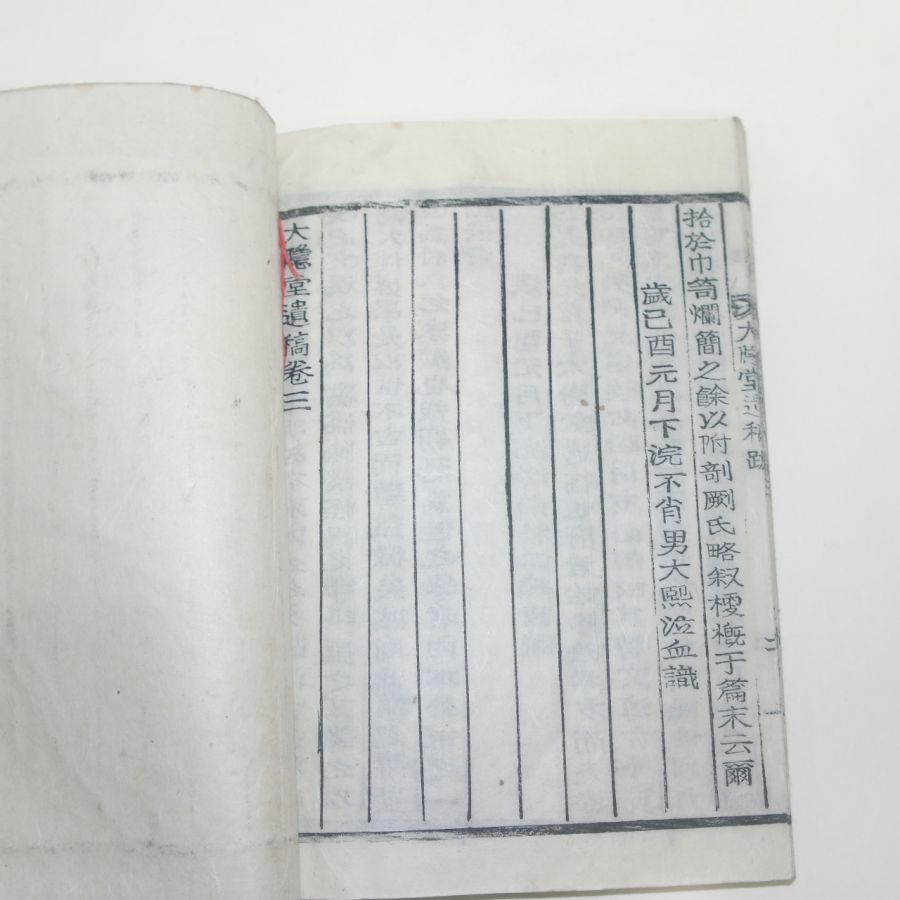 大隱堂遺稿跋
二
拾於巾笥爛簡之餘以附剖劂氏略叙梗槪于篇末云爾
歲己酉元月下浣不肖男大熙泣血識
大隱堂遺稿卷三